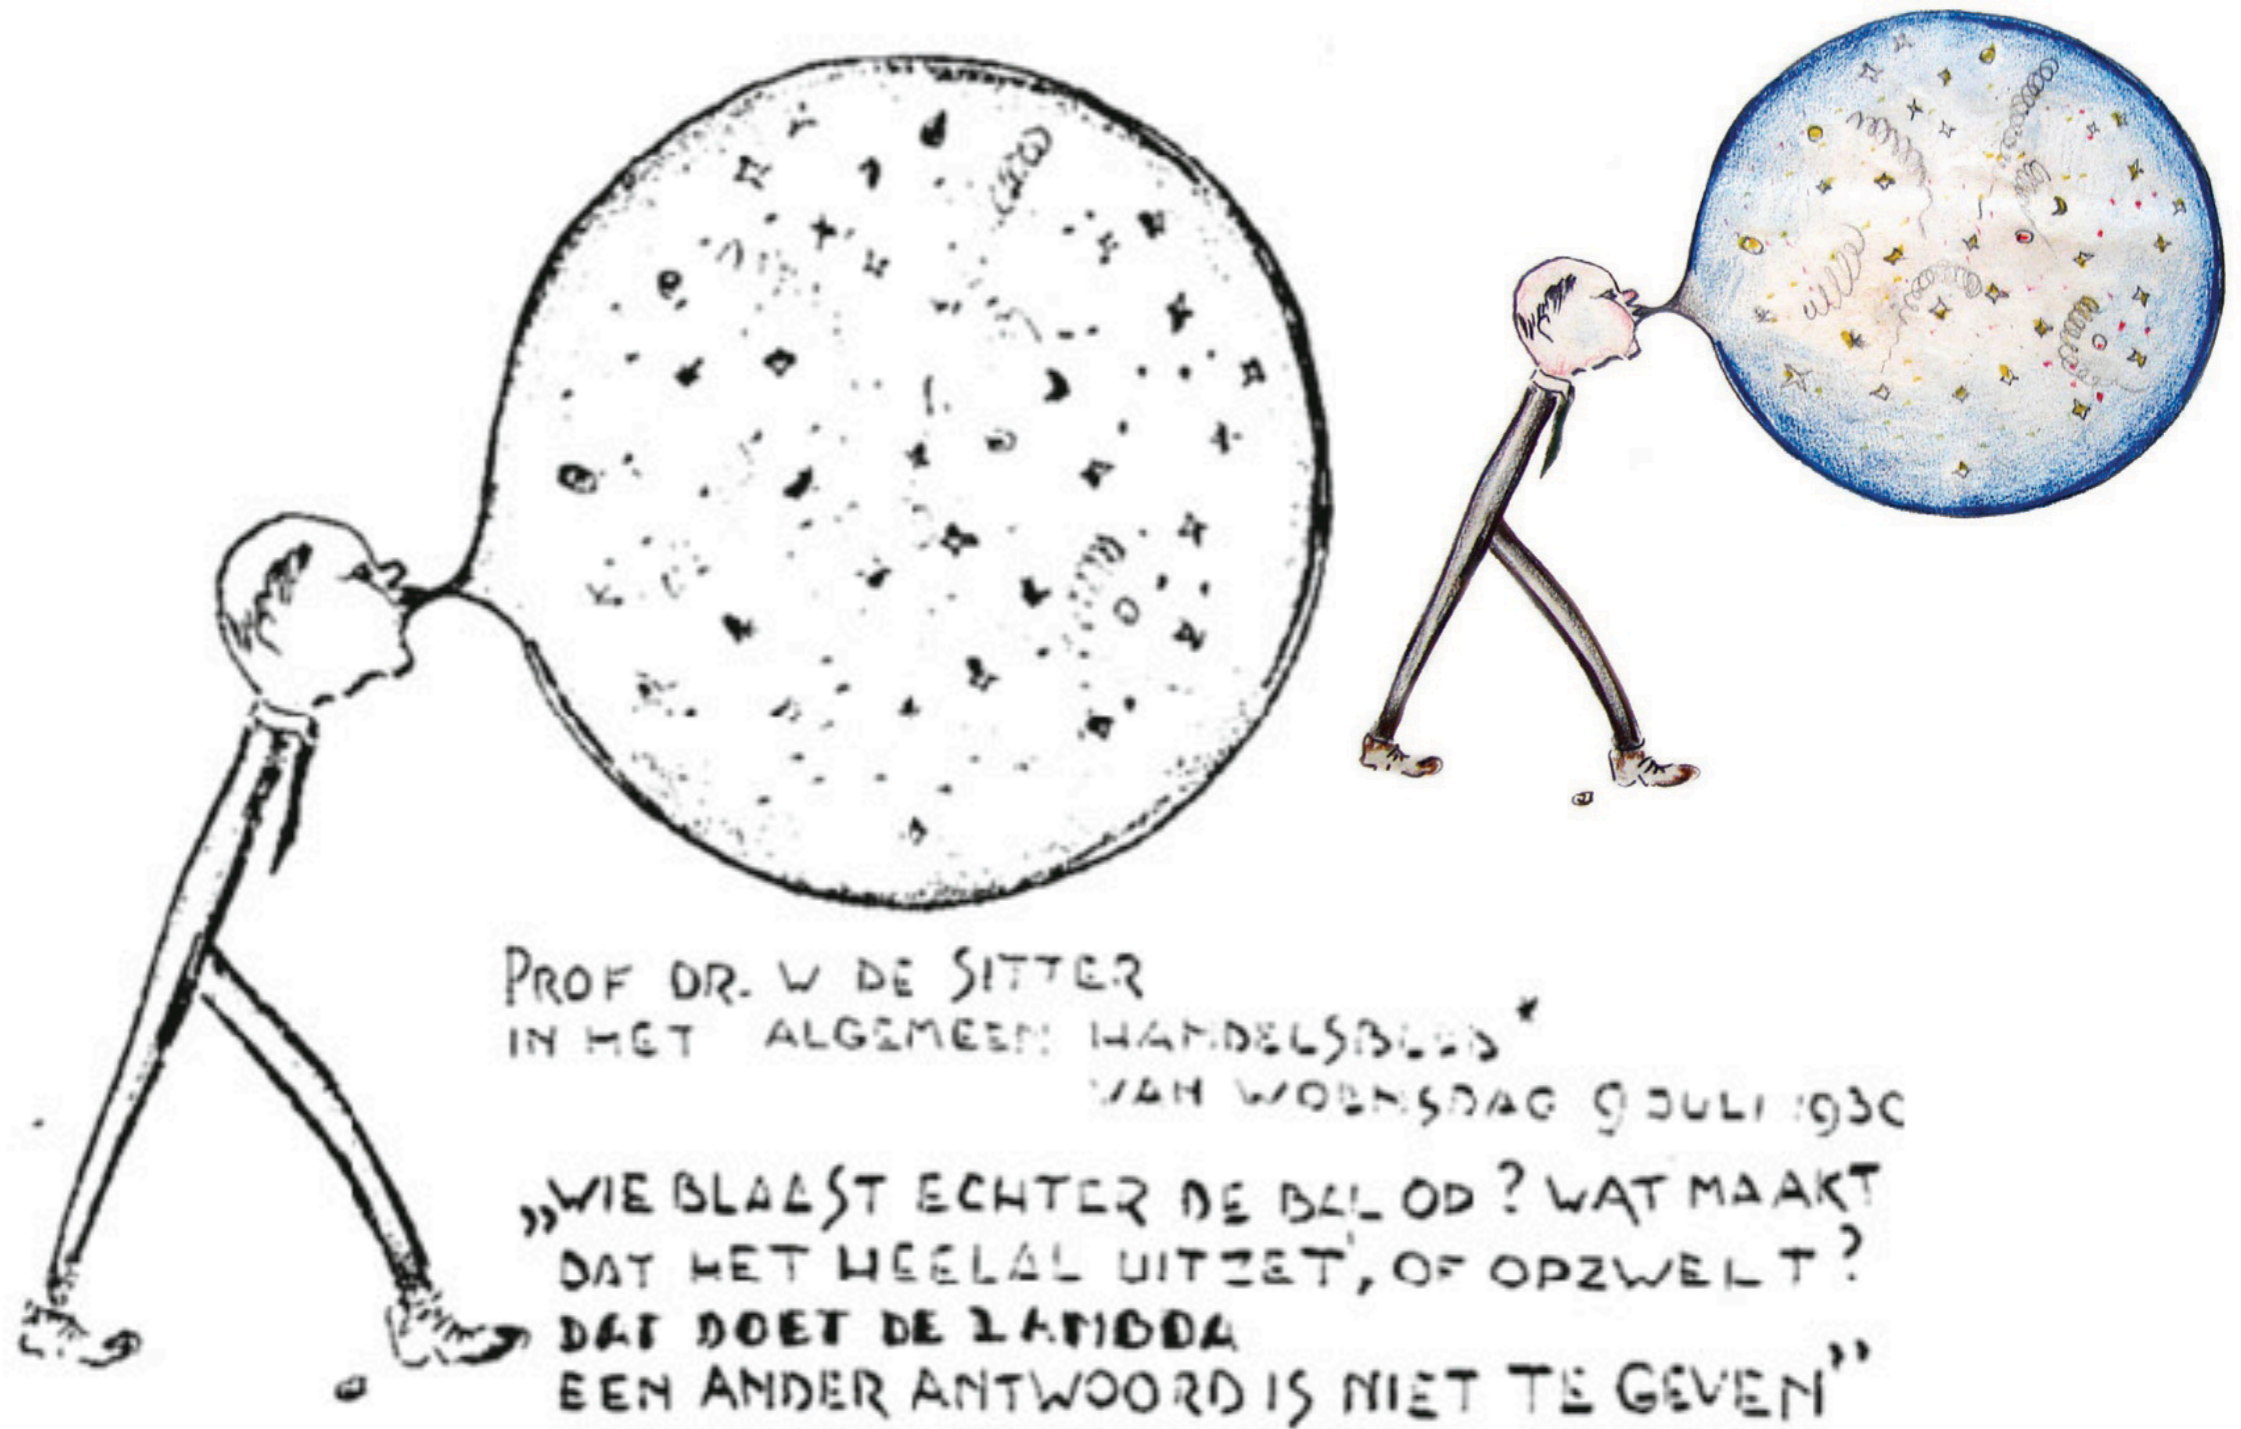 PROF DR. W DE SITTER
IN HET ALGEMEEN HANDELSBLAD*
VAN WOENSDAG 9 JULI 1930
„WIE BLAAST ECHTER DE BAL OP? WAT MAAKT
DAT HET HEELAL UITZET, OF OPZWELT?
DAT DOET DE LAMBDA
EEN ANDER ANTWOORD IS NIET TE GEVEN”